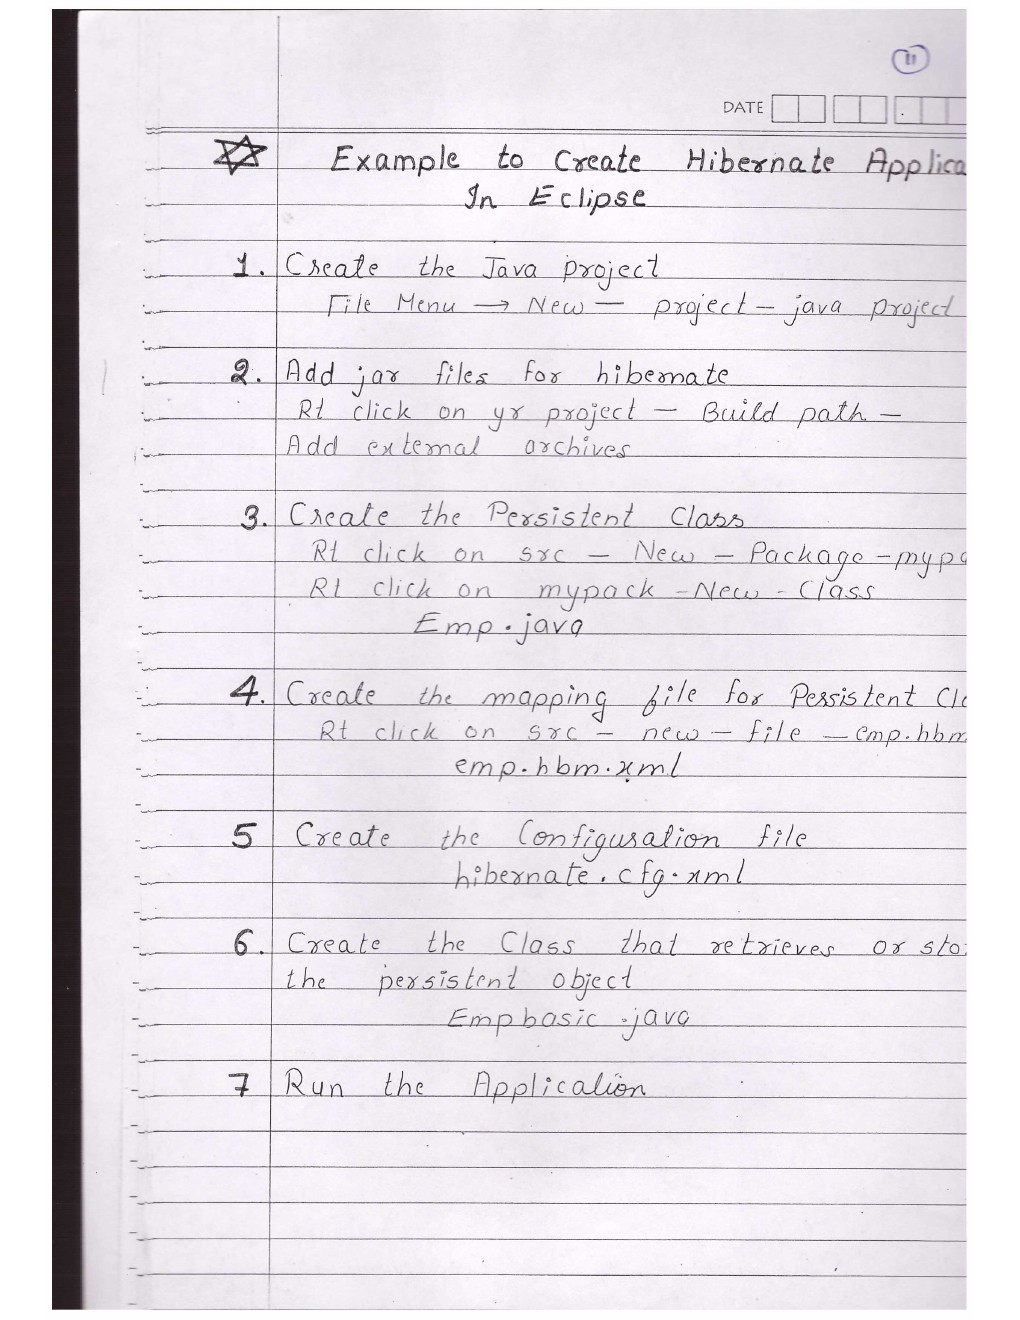 11
DATE
Example to Create Hibernate Applica
In Eclipse
1. Create the Java project
File Menu → New — project — java project
2. Add jar files for hibernate
Rt click on yr project — Build path —
Add external archives
3. Create the Persistent Class
Rt click on src — New — Package — mypa
Rt click on mypack - New - Class
Emp.java
4. Create the mapping file for Persistent Cla
Rt click on src — new — file — emp.hbm
emp.hbm.xml
5 Create the Configuration file
hibernate.cfg.xml
6. Create the Class that retrieves or sto
the persistent object
Empbasic.java
7 Run the Application